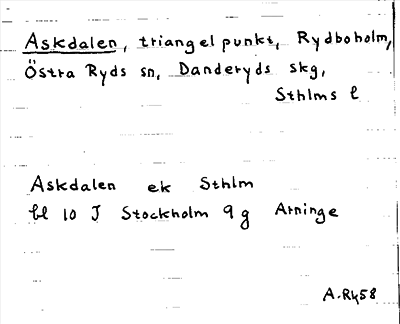 Askdalen, triangelpunkt, Rydboholm,
Östra Ryds sn, Danderyds skg,
Sthlms l
Askdalen ek Sthlm
bl 10 J Stockholm 9g Arninge
A. Ry 58